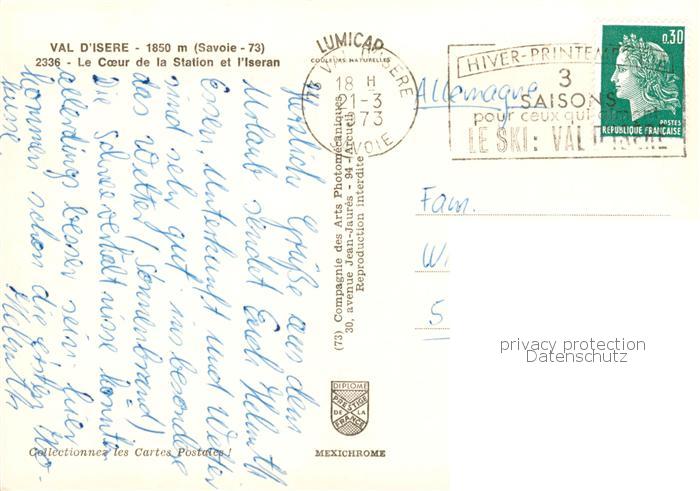 VAL D'ISERE - 1850 m (Savoie - 73)
2336 - Le Cœur de la Station et l'Iseran
LUMICAP
COULEURS NATURELLES
18 H
21-3
1973
SAVOIE
HIVER-PRINTEMPS
3
SAISONS
pour ceux qui
LE SKI: VAL D'ISERE
0,30
POSTES
REPUBLIQUE FRANÇAISE
Allemagne
Herzliche Grüße aus dem
Urlaub sendet Euch Helmuth
Essen, Unterkunft und Weter
sind sehr gut insbesondere
das Wetter (Sonnenbrand)
Die Schneeverhältnisse könnten
allerdings besser sein, hier
kommen schon die ersten
Helmuth
(73) Compagnie des Arts Photomécaniques
30, avenue Jean-Jaurès - 94 - Arcueil
Reproduction interdite
Fam.
W
5
privacy protection
Datenschutz
DIPLOME
PRESTIGE
DE LA
FRANCE
Collectionnez les Cartes Postales !
MEXICHROME